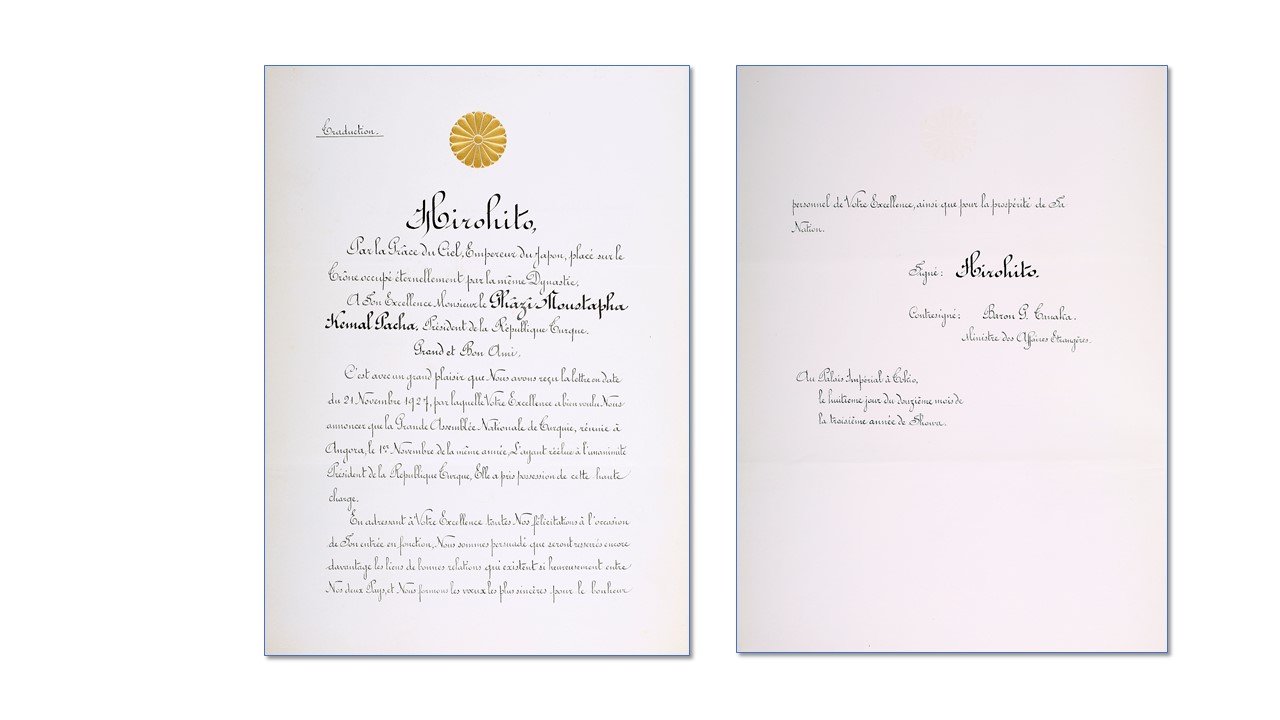 Traduction.
Hirohito,
Par la Grâce du Ciel, Empereur du Japon, placé sur le
Trône occupé éternellement par la même Dynastie,
A Son Excellence Monsieur le Ghâzi Moustapha
Kemal Pacha, Président de la République Turque.
Grand et Bon Ami,
C'est avec un grand plaisir que Nous avons reçu la lettre en date
du 21 Novembre 1927, par laquelle Votre Excellence a bien voulu Nous
annoncer que la Grande Assemblée Nationale de Turquie, réunie à
Angora, le 1er Novembre de la même année, L'ayant réélue à l'unanimité
Président de la République Turque, Elle a pris possession de cette haute
charge.
En adressant à Votre Excellence toutes Nos félicitations à l'occasion
de Son entrée en fonction, Nous sommes persuadé que seront resserrés encore
davantage les liens de bonnes relations qui existent si heureusement entre
Nos deux Pays, et Nous formons les vœux les plus sincères pour le bonheur
personnel de Votre Excellence, ainsi que pour la prospérité de Sa
Nation.
Signé: Hirohito.
Contresigné: Baron G. Tanaka.
Ministre des Affaires Etrangères.
Au Palais Impérial à Tokio,
le huitième jour du douzième mois de
la troisième année de Showa.